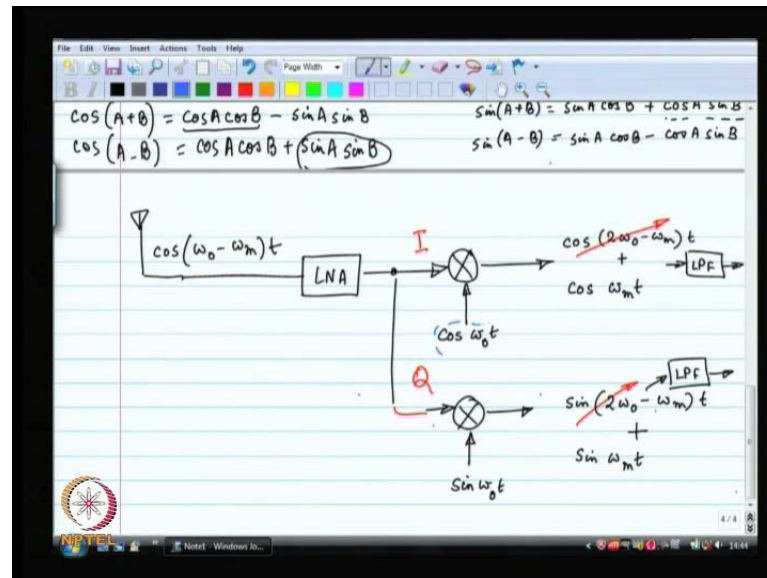 File Edit View Insert Actions Tools Help
Page Width
B I
cos (A+B) = cosA cosB - sinA sinB
sin(A+B) = sinA cosB + cosA sinB
cos (A-B) = cosA cosB + sinA sinB
sin (A-B) = sinA cosB - cosA sinB
cos(ω₀-ωₘ)t
LNA
I
cos ω₀t
cos (2ω₀-ωₘ)t
+
cos ωₘt
LPF
Q
sin ω₀t
LPF
sin (2ω₀-ωₘ)t
+
sin ωₘt
4/4
NPTEL
Note1 - Windows Jo...
14:44